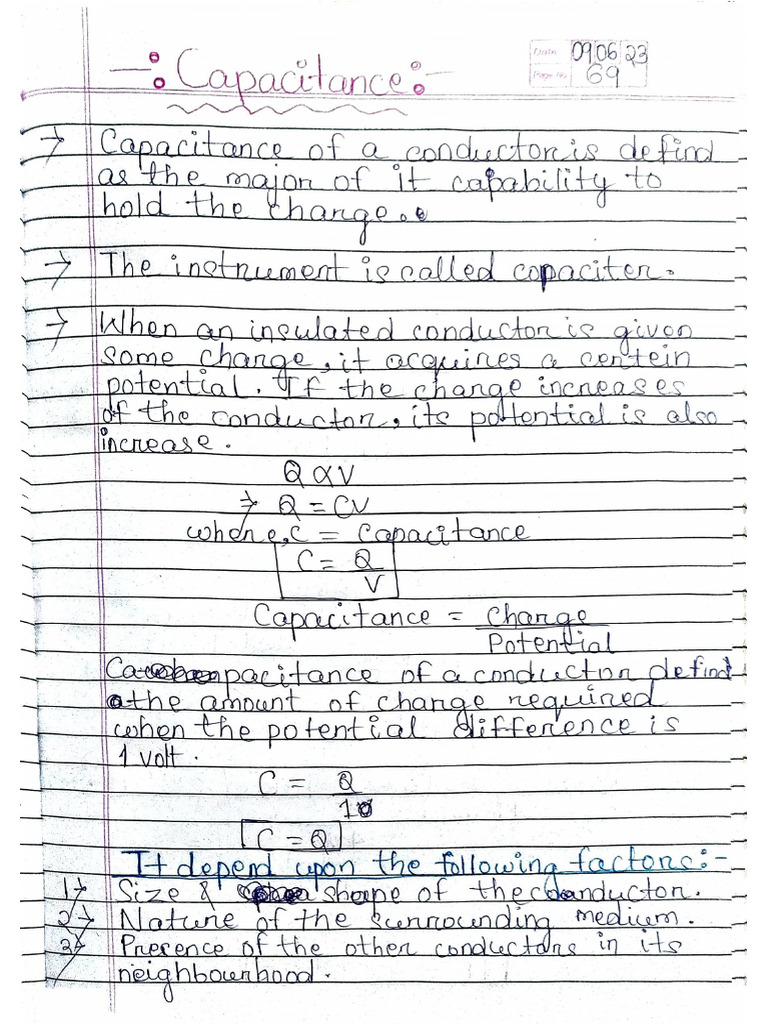 Date 09 06 23
Page No. 69
—: Capacitance :—
→ Capacitance of a conductor is defind
as the major of it capability to
hold the charge.
→ The instrument is called capaciter.
→ When an insulated conductor is given
some charge, it acquires a certein
potential. If the charge increases
of the conductor, its potential is also
increase.
Q ∝ V
⇒ Q = CV
where, C = Capacitance
C = Q/V
Capacitance = Charge/Potential
Capacitance of a conductor defind
the amount of charge required
when the potential difference is
1 volt.
C = Q/1
C = Q
It depend upon the following factors:-
1→ Size & shape of the conductor.
2→ Nature of the surrounding medium.
3→ Presence of the other conductors in its
neighbourhood.